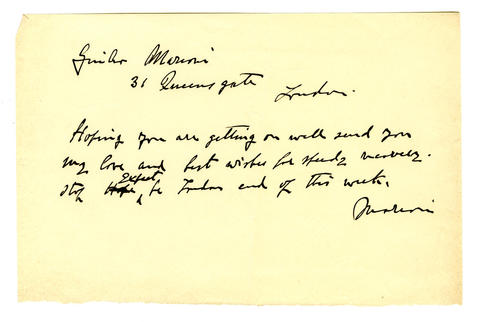 Giulio Marconi
31 Queensgate
London.
Hoping you are getting on well send you
my love and best wishes for speedy recovery.
stop expect be London end of this week.
Marconi